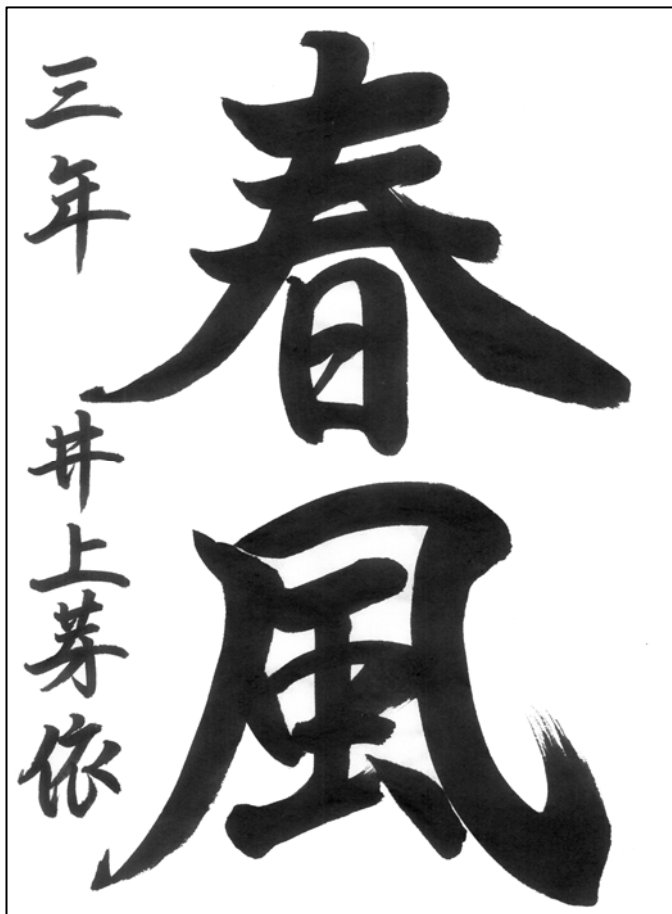 春風
三年 井上芽依